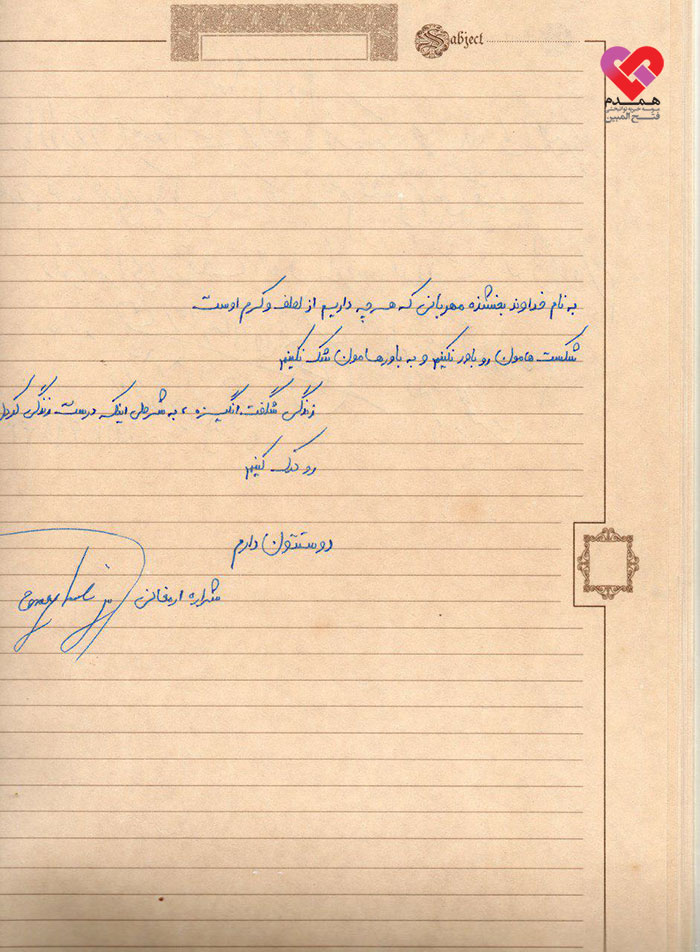 Sabject
همدم
موسسه خیریه توانبخشی
فتح المبین
به نام خداوند بخشنده مهربانی که هر چه داریم از لطف و کرم اوست
شکست هامون رو باور نکنیم و به باورهامون شک نکنیم
زندگی شگفت انگیزه ، به شرطی اینکه درست زندگی کردن
رو درک کنیم
دوستتون دارم
شراره ارمغانی